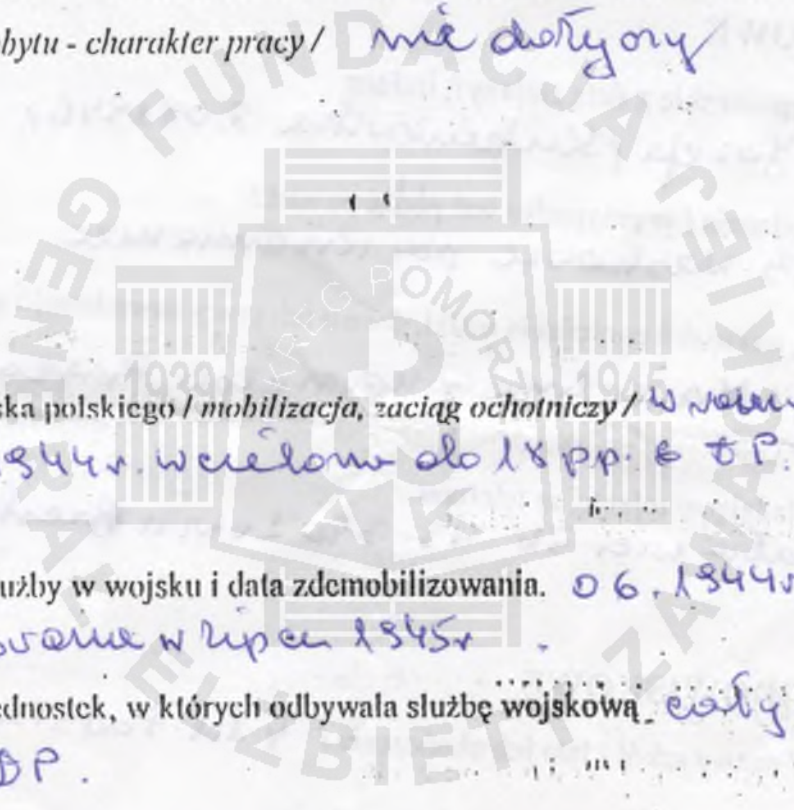 obytu - charakter pracy / nie dotyczy
ska polskiego / mobilizacja, zaciąg ochotniczy / W
.944r. wcielona do 18 pp. 6 DP.
użby w wojsku i data zdemobilizowania. 06.1944r
w lipcu 1945r.
ednostek, w których odbywała służbę wojskową cały
DP.
FUNDACJA GENERAŁ ELŻBIETY ZAWACKIEJ
OKRĘG POMORZE
1939 1945
AK